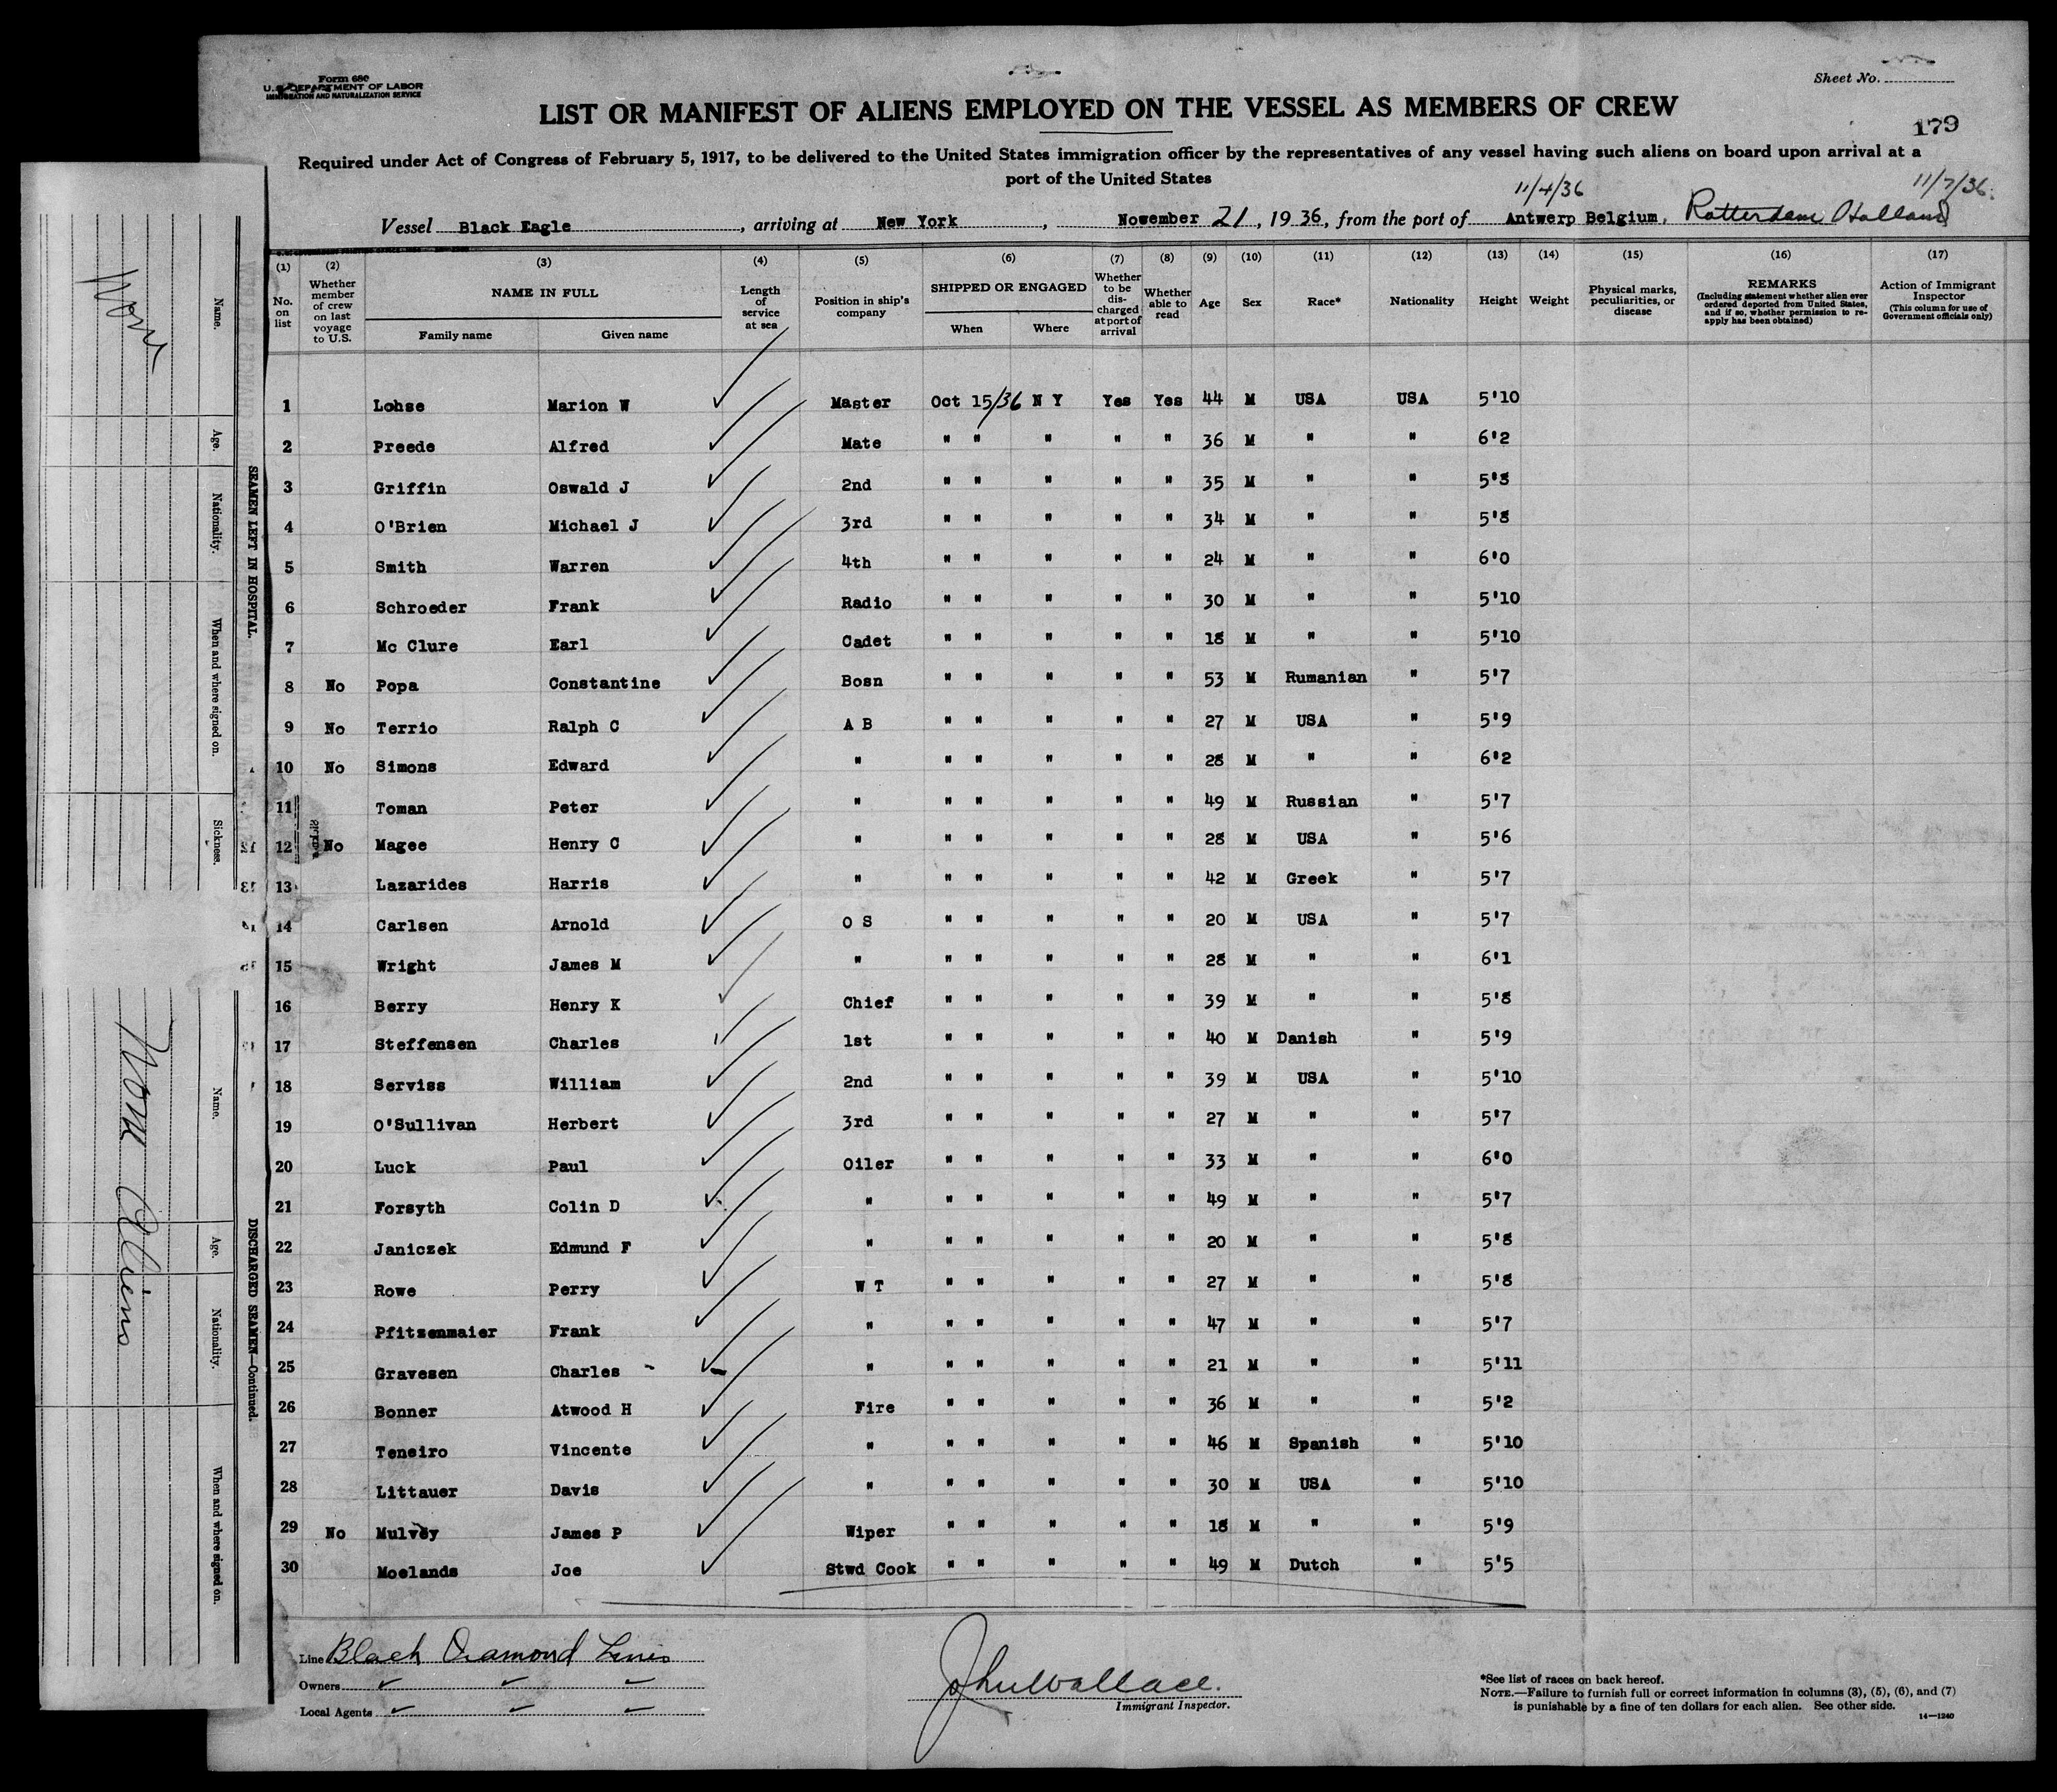 Form 680
U.S. DEPARTMENT OF LABOR
IMMIGRATION AND NATURALIZATION SERVICE
Sheet No.
LIST OR MANIFEST OF ALIENS EMPLOYED ON THE VESSEL AS MEMBERS OF CREW
179
Required under Act of Congress of February 5, 1917, to be delivered to the United States immigration officer by the representatives of any vessel having such aliens on board upon arrival at a
port of the United States
11/4/36 11/7/36
Vessel Black Eagle, arriving at New York, Nowember 21, 1936, from the port of Antwerp Belgium, Rotterdam Holland
(1) (2) (3) (4) (5) (6) (7) (8) (9) (10) (11) (12) (13) (14) (15) (16) (17)
No. on list
Whether member of crew on last voyage to U.S.
NAME IN FULL
Family name Given name
Length of service at sea
Position in ship's company
SHIPPED OR ENGAGED
When Where
Whether to be discharged at port of arrival
Whether able to read
Age
Sex
Race*
Nationality
Height
Weight
Physical marks, peculiarities, or disease
REMARKS
(Including statement whether alien ever ordered deported from United States, and if so, whether permission to reapply has been obtained)
Action of Immigrant Inspector
(This column for use of Government officials only)
1 Lohse Marion W Master Oct 15/36 N Y Yes Yes 44 M USA USA 5'10
2 Preede Alfred Mate " " " " " 36 M " " 6'2
3 Griffin Oswald J 2nd " " " " " 35 M " " 5'8
4 O'Brien Michael J 3rd " " " " " 34 M " " 5'8
5 Smith Warren 4th " " " " " 24 M " " 6'0
6 Schroeder Frank Radio " " " " " 30 M " " 5'10
7 Mc Clure Earl Cadet " " " " " 18 M " " 5'10
8 No Popa Constantine Bosn " " " " " 53 M Rumanian " 5'7
9 No Terrio Ralph C A B " " " " " 27 M USA " 5'9
10 No Simons Edward " " " " " " 28 M " " 6'2
11 Toman Peter " " " " " " 49 M Russian " 5'7
12 No Magee Henry C " " " " " " 28 M USA " 5'6
13 Lazarides Harris " " " " " " 42 M Greek " 5'7
14 Carlsen Arnold O S " " " " " 20 M USA " 5'7
15 Wright James M " " " " " " 28 M " " 6'1
16 Berry Henry K Chief " " " " " 39 M " " 5'8
17 Steffensen Charles 1st " " " " " 40 M Danish " 5'9
18 Serviss William 2nd " " " " " 39 M USA " 5'10
19 O'Sullivan Herbert 3rd " " " " " 27 M " " 5'7
20 Luck Paul Oiler " " " " " 33 M " " 6'0
21 Forsyth Colin D " " " " " " 49 M " " 5'7
22 Janiczek Edmund F " " " " " " 20 M " " 5'8
23 Rowe Perry W T " " " " " 27 M " " 5'8
24 Pfitzenmaier Frank " " " " " " 47 M " " 5'7
25 Gravesen Charles " " " " " " 21 M " " 5'11
26 Bonner Atwood H Fire " " " " " 36 M " " 5'2
27 Teneiro Vincente " " " " " " 46 M Spanish " 5'10
28 Littauer Davis " " " " " " 30 M USA " 5'10
29 No Mulvey James P Wiper " " " " " 18 M " " 5'9
30 Moelands Joe Stwd Cook " " " " " 49 M Dutch " 5'5
Line Black Diamond Lines
Owners
Local Agents
John Wallace.
Immigrant Inspector.
*See list of races on back hereof.
NOTE.—Failure to furnish full or correct information in columns (3), (5), (6), and (7)
is punishable by a fine of ten dollars for each alien. See other side.
14—1240
SEAMEN LEFT IN HOSPITAL.
Name.
Age.
Nationality.
When and where signed on.
Sickness.
None
DISCHARGED SEAMEN—Continued.
Name.
Age.
Nationality.
When and where signed on.
None Aliens